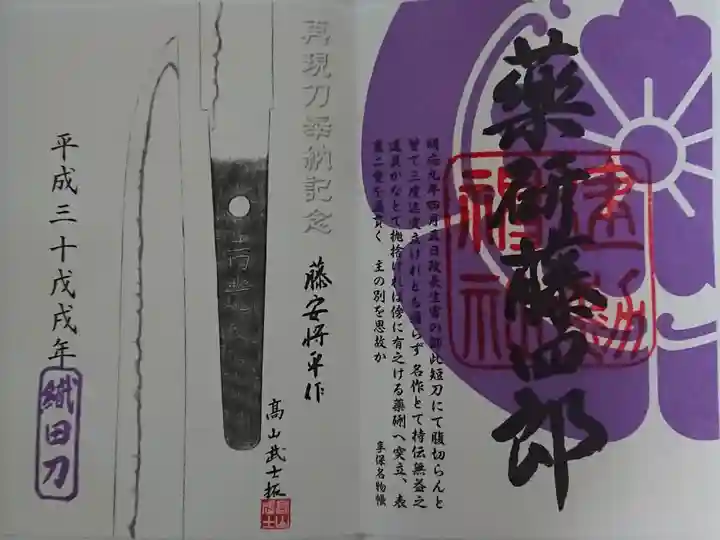 薬研藤四郎
建勲神社
明応九年四月五日政長生害の節此短刀にて腹切らんと
皆て三度迄度立けれとも通らず 名作とて持伝無益之
道具かなとて抛捨けれは傍に有之ける薬研へ突立、表
裏二重を通貫く 主の別を思故か
享保名物帳
再現刀奉納記念
藤安将平作
高山武士拓
平成三十戊戌年
織田刀